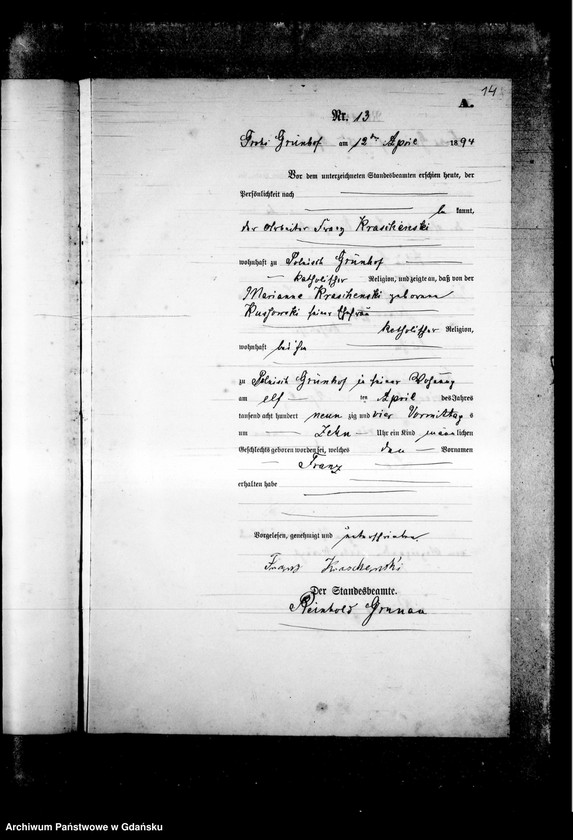 14
A.
Nr. 13
Grünhof am 12ten April 1894
Vor dem unterzeichneten Standesbeamten erschien heute, der
Persönlichkeit nach
be kannt,
der Arbeiter Franz Kraschenski
wohnhaft zu Polnisch Grünhof
katholischer Religion, und zeigte an, daß von der
Marianne Kraschenski geborene
seiner Ehefrau
katholischer Religion,
wohnhaft bei ihm
zu Polnisch Grünhof in seiner Wohnung
am elf ten April des Jahres
tausend acht hundert neun zig und vier Vormittag s
um Zehn Uhr ein Kind männlichen
Geschlechts geboren worden sei, welches den Vornamen
Franz
erhalten habe
Vorgelesen, genehmigt und unterschrieben.
Franz Kraschenski
Der Standesbeamte.
Reinhold Grunau
Archiwum Państwowe w Gdańsku